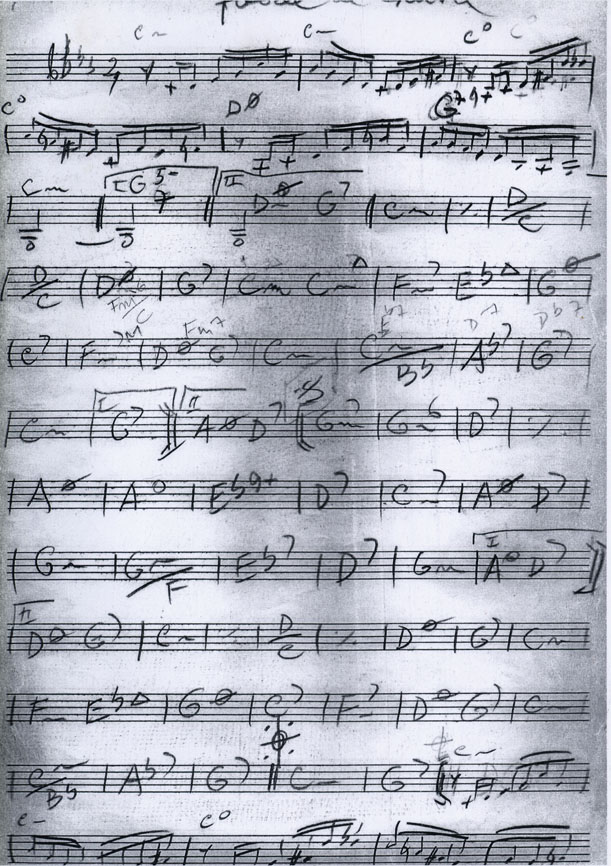 C- C- C° C°
2/4
C° DØ G7 9+
C- I G5- 7 II DØ G7 C- ⁒ D/C
D/C DØ Fm6/C G7 Cm C-Δ F-7 EbΔ GØ
C7 F-7 DØ Fm7 G7 C- C-/Bb Eb7 Ab7 D7 G7 Db7
C- I G7 II AØ D7 G-7 G-6 D7 ⁒
AØ A° Eb9+ D7 C-7 AØ D7
G- G-/F Eb7 D7 G- I AØ D7
II DØ G7 C- ⁒ D/C ⁒ DØ G7 C-
F- EbΔ GØ C7 F-7 DØ G7 C-
C-/Bb Ab7 G7 C- G7 C-
C- C°